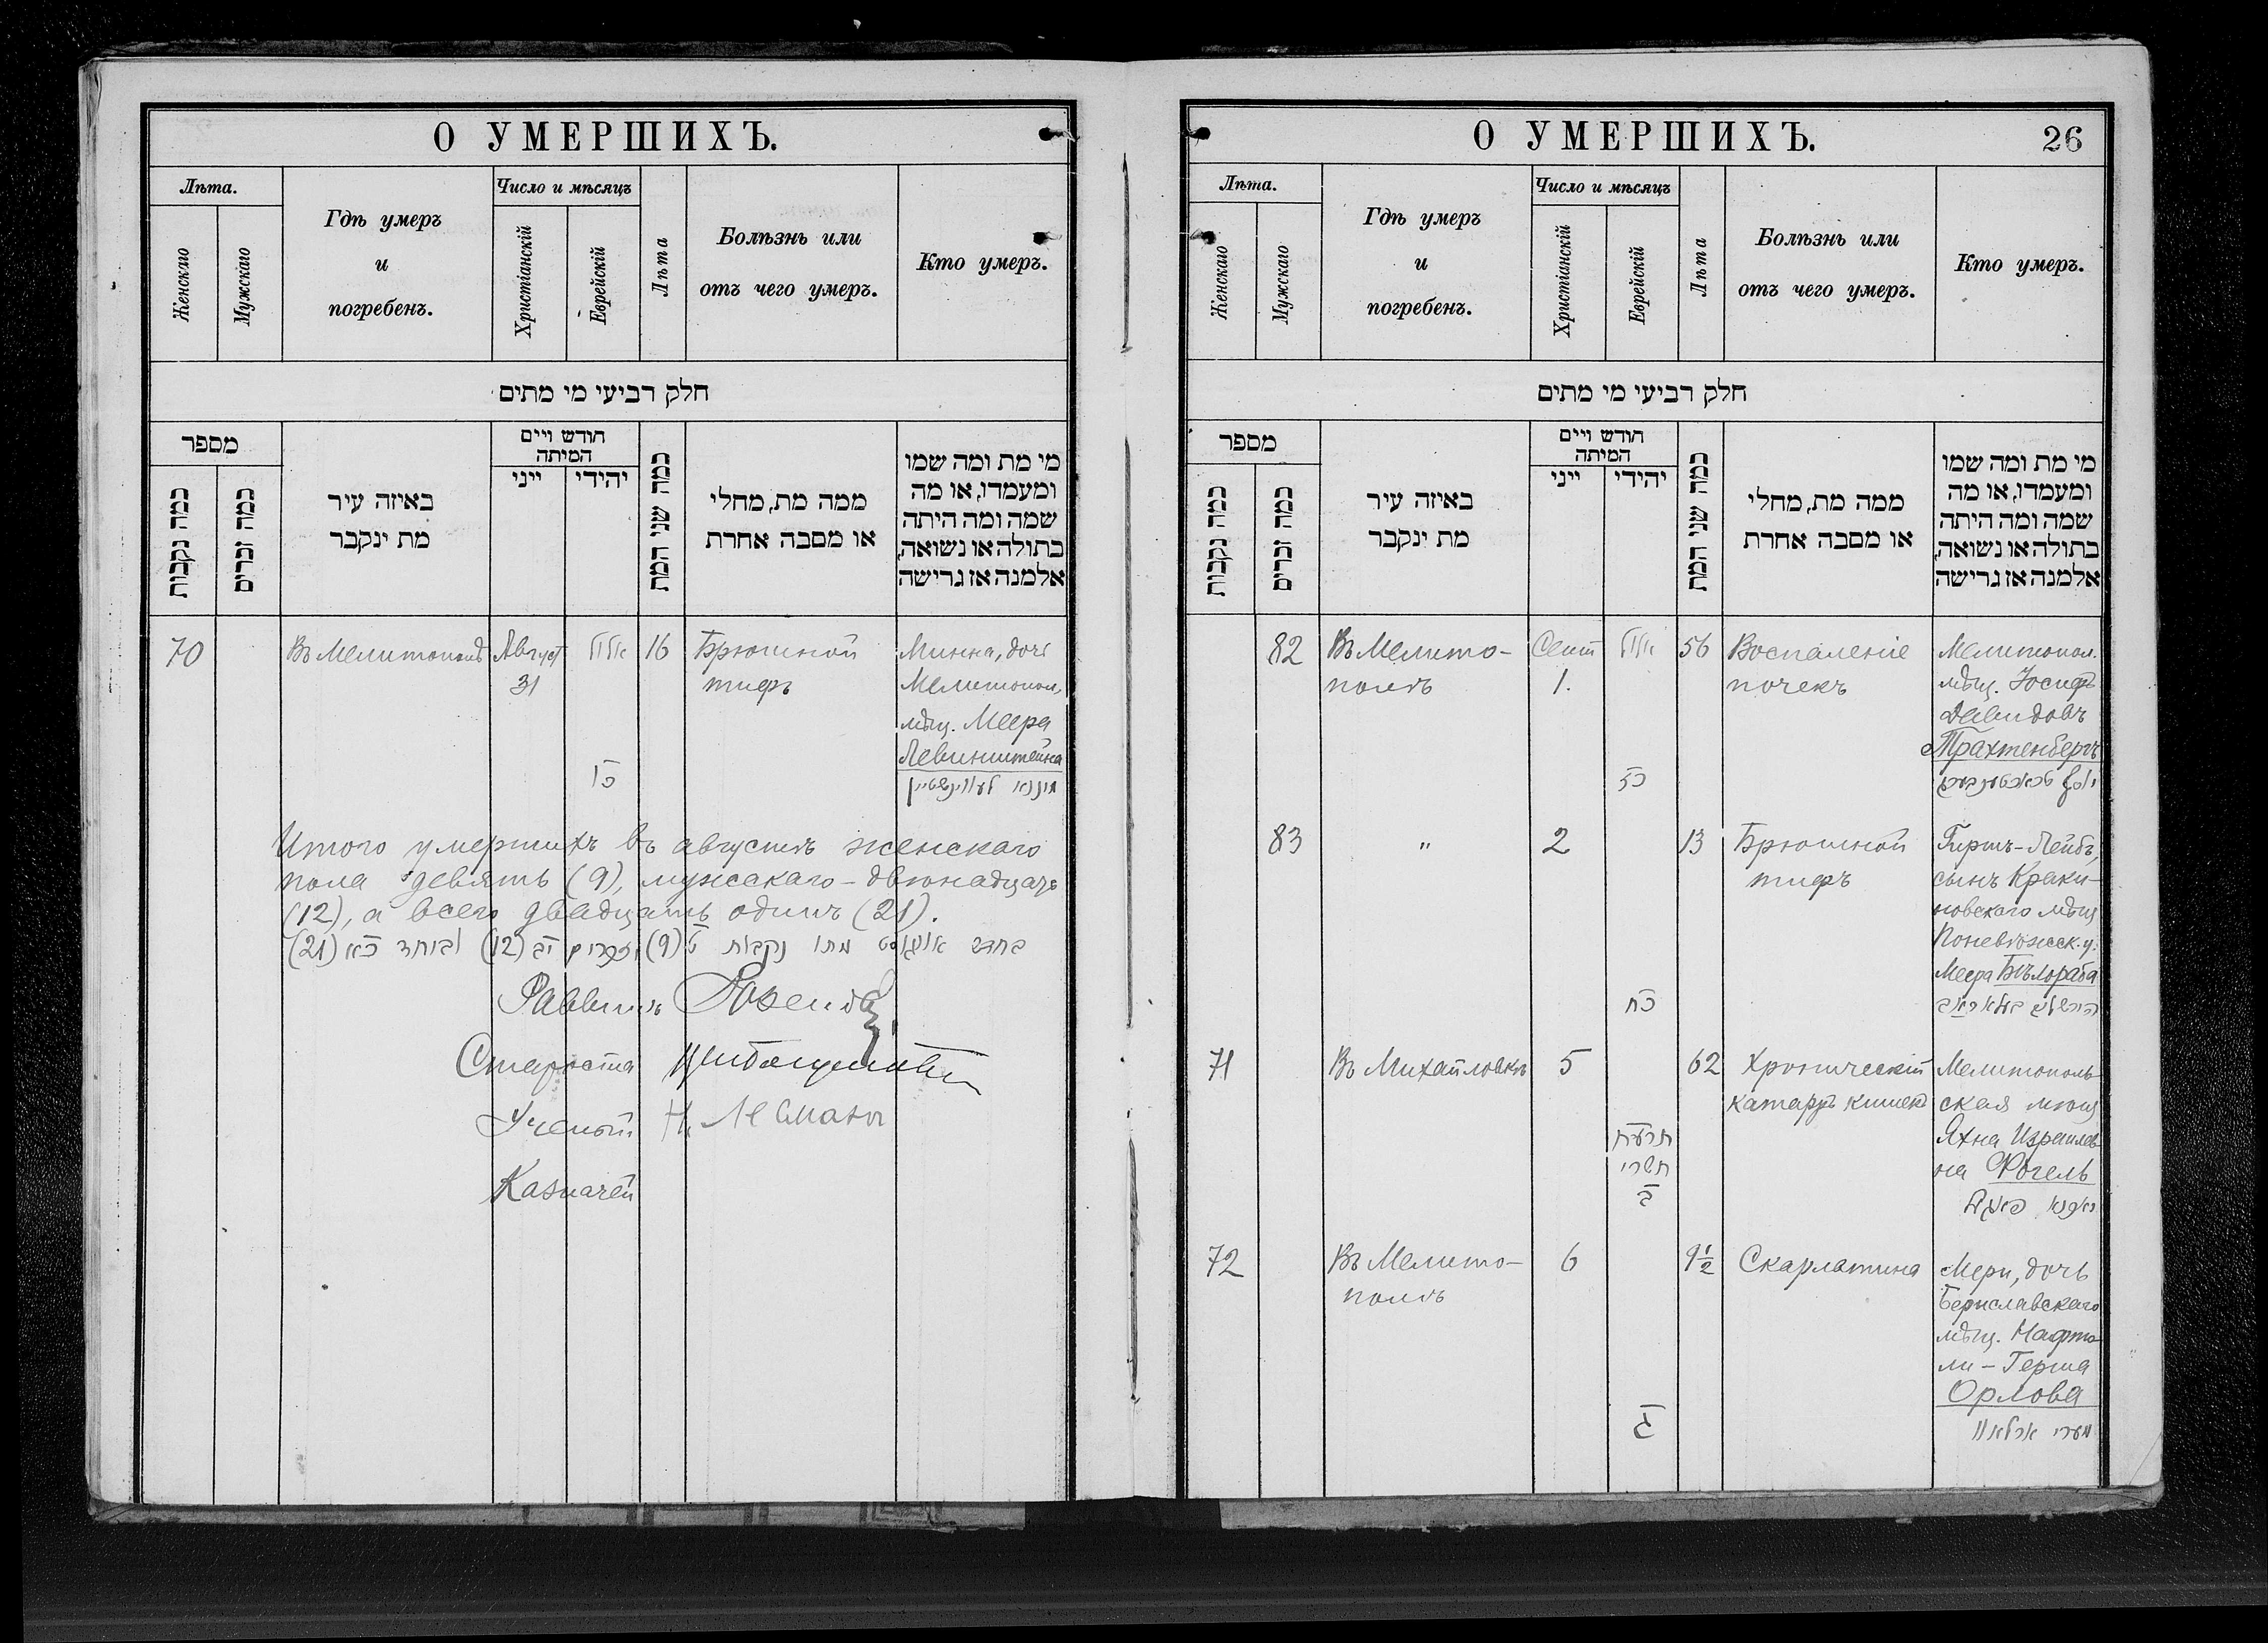 О УМЕРШИХЪ.
Лѣта.
Женскаго
Мужскаго
Гдѣ умеръ
и
погребенъ.
Число и мѣсяцъ
Христіанскій
Еврейскій
Лѣта
Болѣзнь или
отъ чего умеръ.
Кто умеръ.
חלק רביעי מי מתים
מספר
כמה נקבות
כמה זכרים
באיזה עיר
מת ינקבר
חודש ויים
המיתה
ייני
יהידי
כמה שני המת
ממה מת, מחלי
או מסבה אחרת
מי מת ומה שמו
ומעמדו, או מה
שמה ומה היתה
בתולה או נשואה,
אלמנה אז גרישה
70
Въ Мелитополѣ
Август
31
אלול
כז
16
Брюшной
тифъ
Минна, дочь
Мелитопол.
мѣщ. Меера
Левинштейна
מיננא לעווינשטיין
Итого умершихъ въ августѣ женскаго
пола девять (9), мужскаго - двѣнадцать
(12), а всего двадцать одинъ (21).
בחדש אויגוסט מתו נקבות ט (9) וזכרים יב (12) וביחד כא (21)
Раввинъ
Староста
Ученый
Казначей
О УМЕРШИХЪ.
26
Лѣта.
Женскаго
Мужскаго
Гдѣ умеръ
и
погребенъ.
Число и мѣсяцъ
Христіанскій
Еврейскій
Лѣта
Болѣзнь или
отъ чего умеръ.
Кто умеръ.
חלק רביעי מי מתים
מספר
כמה נקבות
כמה זכרים
באיזה עיר
מת ינקבר
חודש ויים
המיתה
ייני
יהידי
כמה שני המת
ממה מת, מחלי
או מסבה אחרת
מי מת ומה שמו
ומעמדו, או מה
שמה ומה היתה
בתולה או נשואה,
אלמנה אז גרישה
82
Въ Мелито-
полѣ
Сент
1.
אלול
56
Воспаленіе
почекъ
Мелитопол.
мѣщ. Іосифъ
Давидовъ
Трахтенбергъ
יוסף טראכטענבערג
83
"
2
כח
13
Брюшной
тифъ
Гиршъ-Лейбъ,
сынъ Краки-
новскаго мѣщ
Поневѣжск. у.
Меера Бѣлораба
71
Въ Михайловкѣ
5
תרעח
תשרי
ב
62
Хроническій
катарръ кишекъ
Мелитополь-
ская мѣщ
Яхна Израилев
на Фогель
יאכנא פאגעל
72
Въ Мелито-
полѣ
6
ג
9 1/2
Скарлатина
Мери, дочь
Бериславскаго
мѣщ. Нафта-
ли - Герша
Орлова
מערי ארלאוו